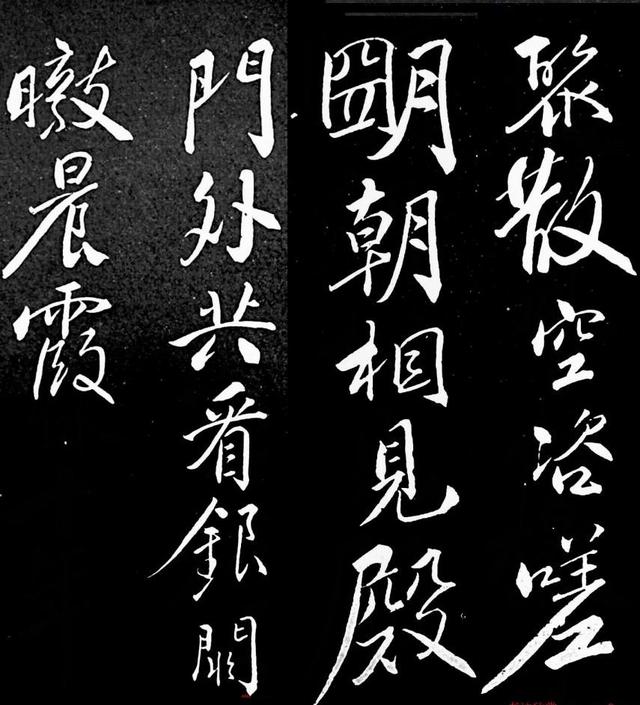 聚散空咨嗟
明朝相見殿
門外共看銀闕
暾晨霞